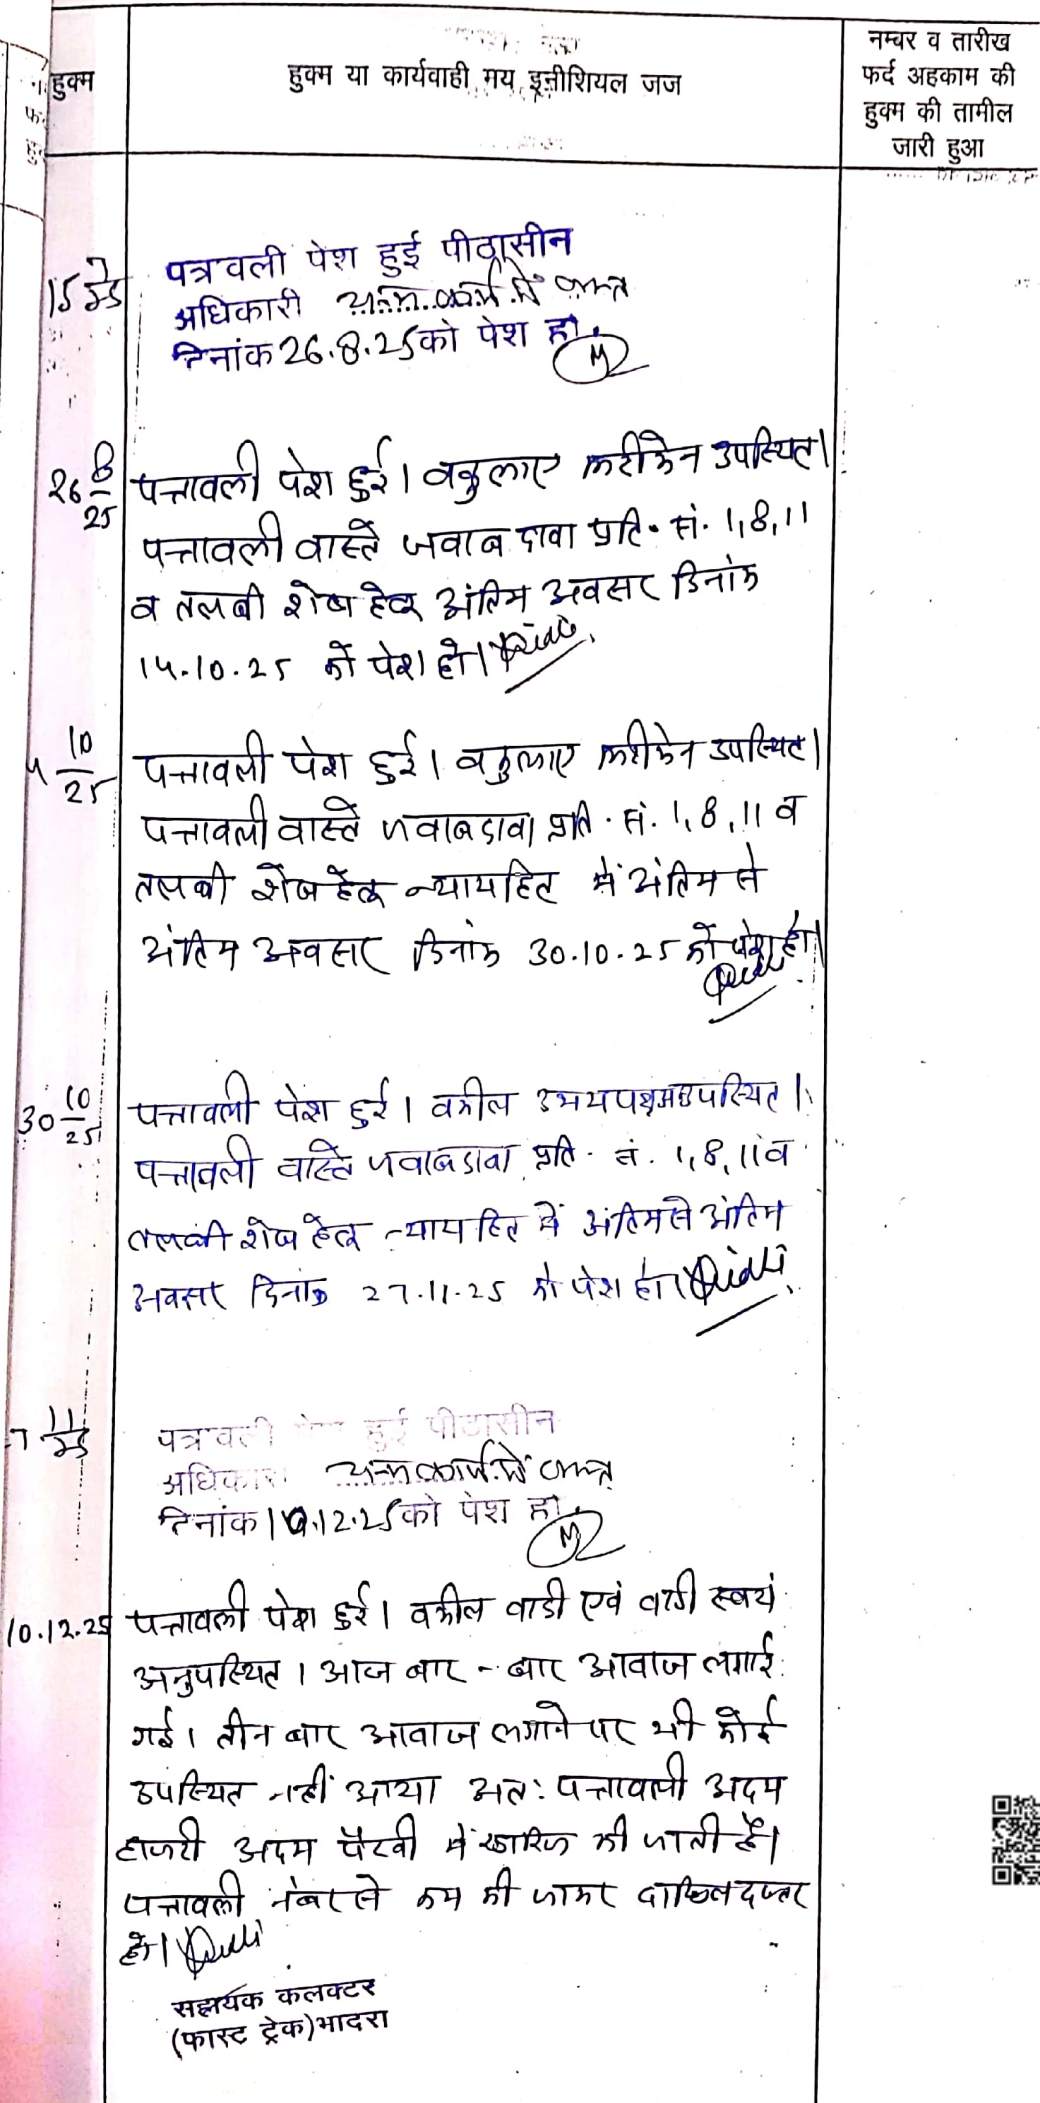 हुक्म
हुक्म या कार्यवाही मय इनीशियल जज
नम्बर व तारीख
फर्द अहकाम की
हुक्म की तामील
जारी हुआ
15 7/25
पत्रावली पेश हुई पीठासीन
अधिकारी अन्य कार्य में व्यस्त
दिनांक 26.8.25 को पेश हो।
26 8/25
पत्रावली पेश हुई। वकुलाए फरीकेन उपस्थित।
पत्रावली वास्ते जवाब दावा प्रति. सं. 1,8,11
व तलबी शेष हेतु अंतिम अवसर दिनांक
14.10.25 को पेश हो।
4 10/25
पत्रावली पेश हुई। वकुलाए फरीकेन उपस्थित।
पत्रावली वास्ते जवाबदावा प्रति. सं. 1,8,11 व
तलबी शेष हेतु न्यायहित में अंतिम से
अंतिम अवसर दिनांक 30.10.25 को पेश हो।
30 10/25
पत्रावली पेश हुई। वकील उभयपक्ष उपस्थित।
पत्रावली वास्ते जवाबदावा प्रति. सं. 1,8,11 व
तलबी शेष हेतु न्यायहित में अंतिम से अंतिम
अवसर दिनांक 27.11.25 को पेश हो।
7 11/25
पत्रावली पेश हुई पीठासीन
अधिकारी अन्य कार्य में व्यस्त
दिनांक 10.12.25 को पेश हो।
10.12.25
पत्रावली पेश हुई। वकील वादी एवं वादी स्वयं
अनुपस्थित। आज बार-बार आवाज लगाई
गई। तीन बार आवाज लगाने पर भी कोई
उपस्थित नहीं आया अत: पत्रावली अदम
हाजरी अदम पैरवी में खारिज की जाती है।
पत्रावली नंबर से कम की जाकर दाखिल दफ्तर
हो।
सहायक कलक्टर
(फास्ट ट्रेक) भादरा